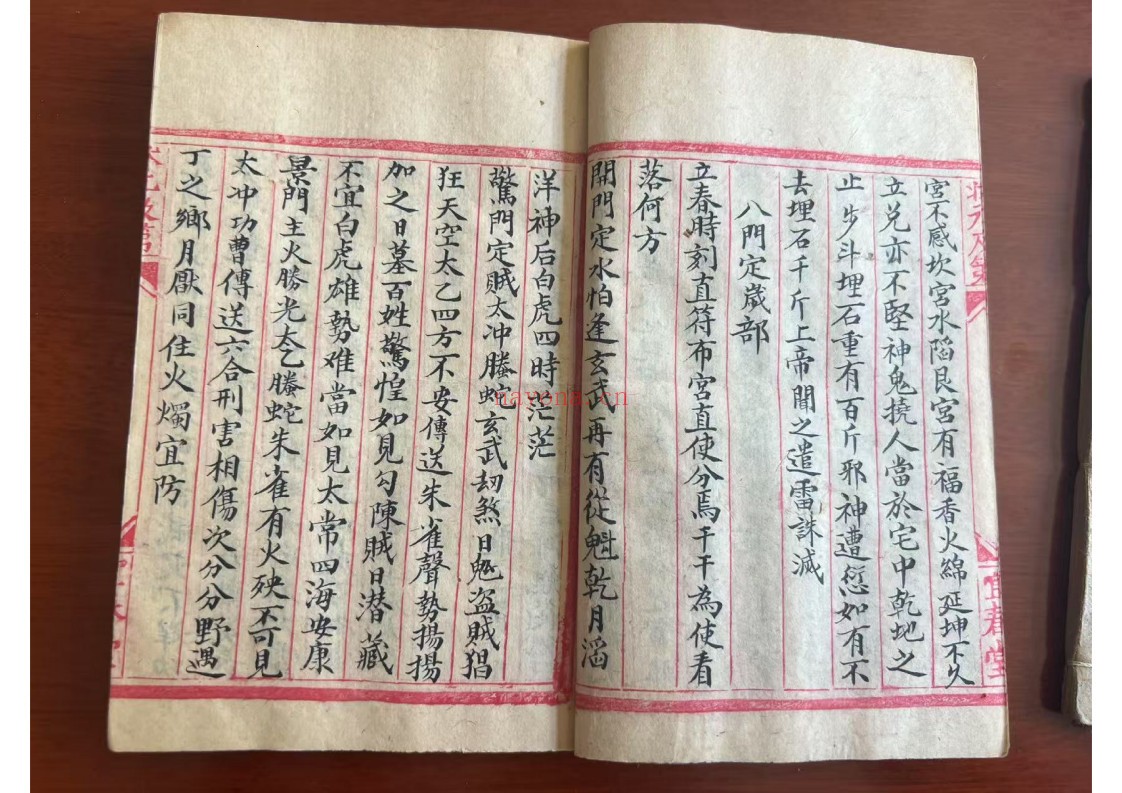 宮不感坎宮水陷艮宮有福香火綿延坤不久
立兌亦不堅神鬼撓人當於宅中乾地之
止步斗埋石重有百斤邪神遭愆如有不
去埋石千斤上帝聞之遣雷誅滅
八門定崴部
立春時刻直符布宮直使分焉千干為使看
落何方
開門定水怕逢玄武再有從魁乾月滔
洋神后白虎四時茫茫
驚門定賊太冲螣蛇玄武刼煞日鬼盜賊猖
狂天空太乙四方不安傳送朱雀聲勢揚揚
加之日墓百姓驚惶如見勾陳賊日潜藏
不宜白虎雄勢难當如見太常四海安康
景門主火勝光太乙螣蛇朱雀有火殃不可見
太冲功曹傳送六合刑害相傷次分分野遇
丁之鄉月厭同住火燭宜防
宜春堂
nayona.cn